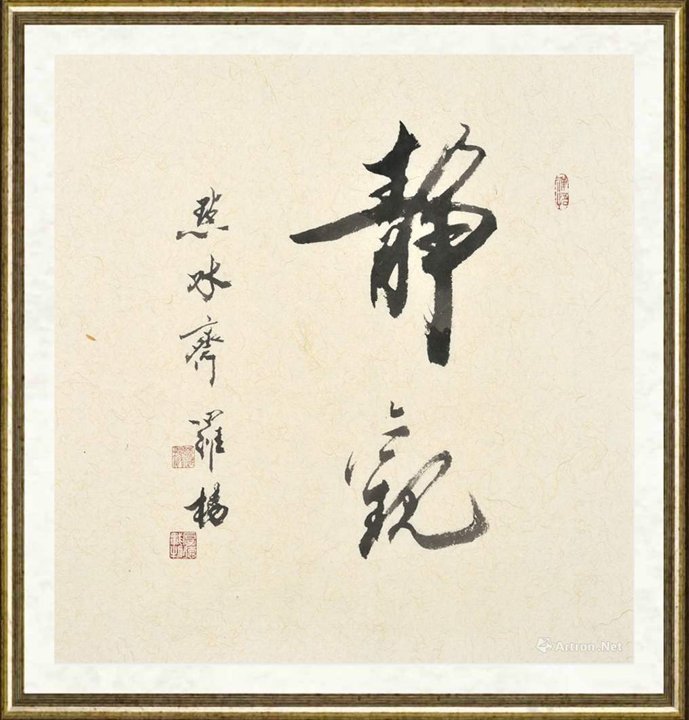 静觀
點水齋羅楊
Artron.Net